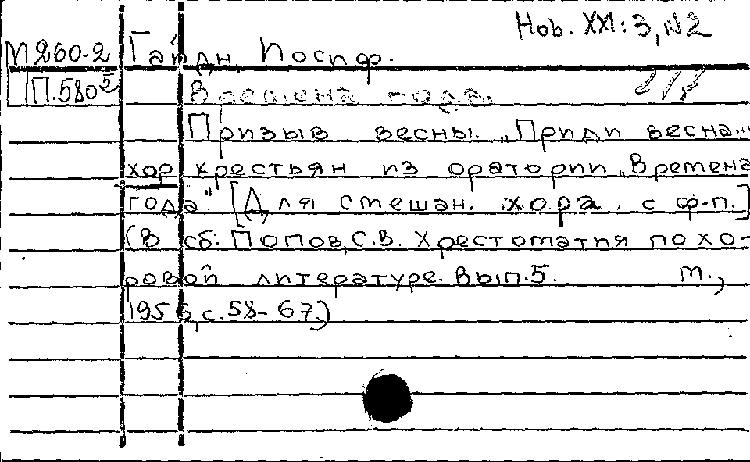 Hob. XXI:3, N2
М 260-2 Гайдн, Иосиф.
П.580⁵ Времена года.
Призыв весны. „Приди весна"
хор крестьян из оратории „Времена
года" [Для смешан. хора. с ф-п.]
(В сб: Попов, С.В. Хрестоматия по хо-
ровой литературе. Вып.5. М.,
195 , с.58-67.)